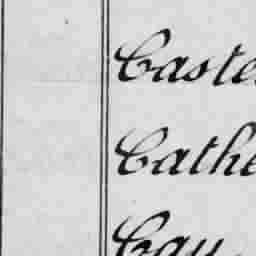 Caste
Cathe
Cay